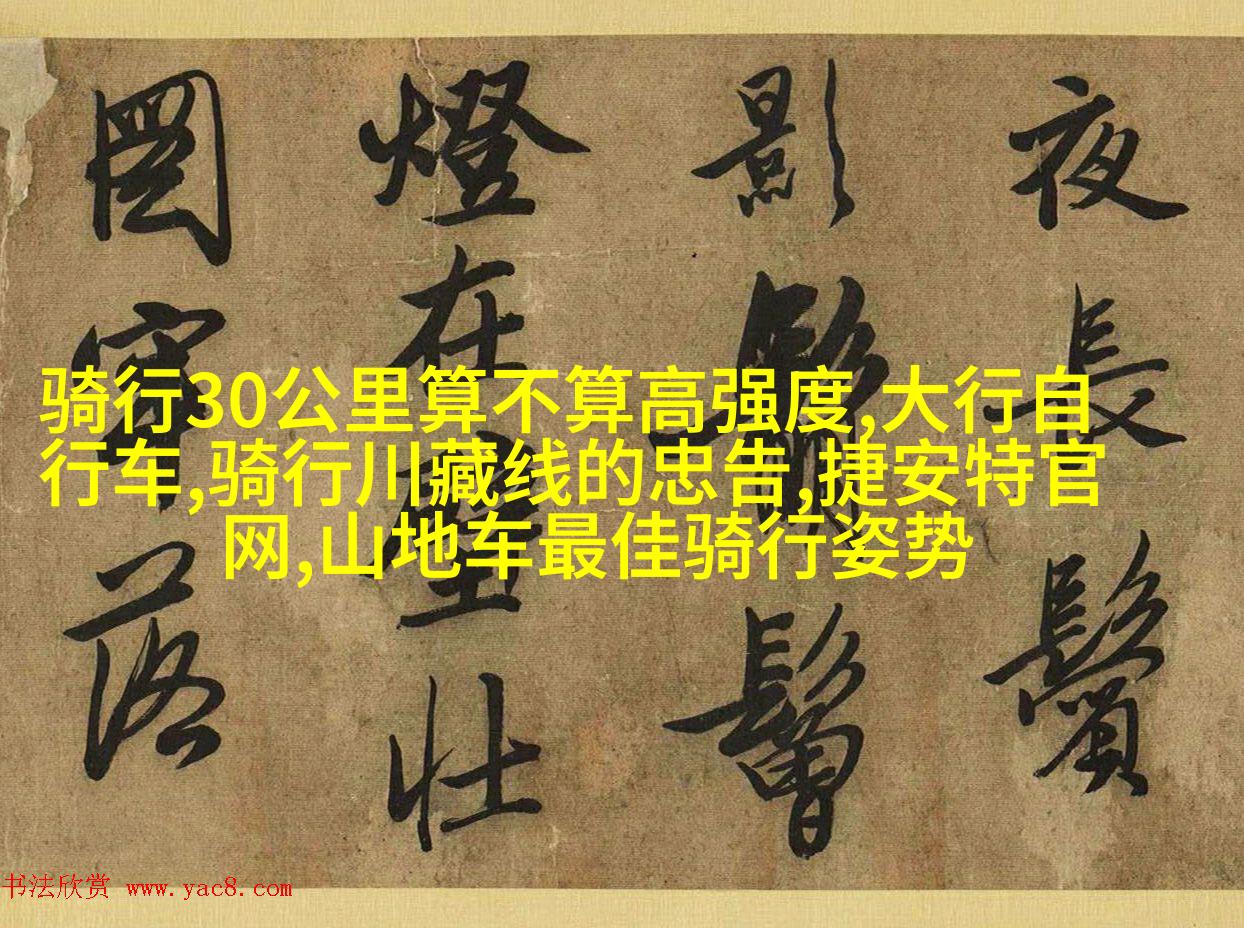 骑行30公里算不算高强度,大行自
行车,骑行川藏线的忠告,捷安特官
网,山地车最佳骑行姿势
夜長鬢
影鬙
燈在壁壯
圖落
书法欣赏 www.yac8.com